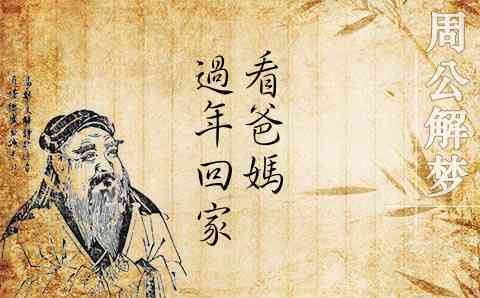 周公解梦
看爸媽
過年回家